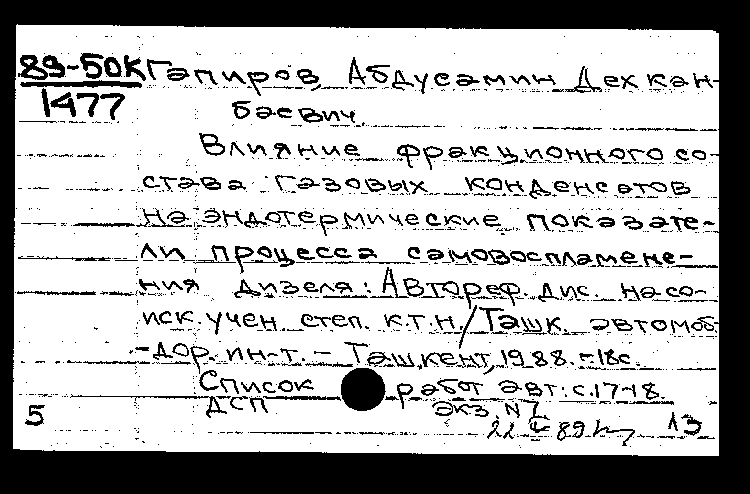 89-50К Гапиров, Абдусамин Дехкан-
1477
баевич.
Влияние фракционного со-
става газовых конденсатов
на эндотермические показате-
ли процесса самовоспламене-
ния дизеля: Автореф. дис. на со-
иск. учен. степ. к.т.н. / Ташк. автомоб.
-дор. ин-т. - Ташкент, 1988. - 18с.
Список работ авт.: с. 17-18.
ДСП экз. N
5 22 89 13